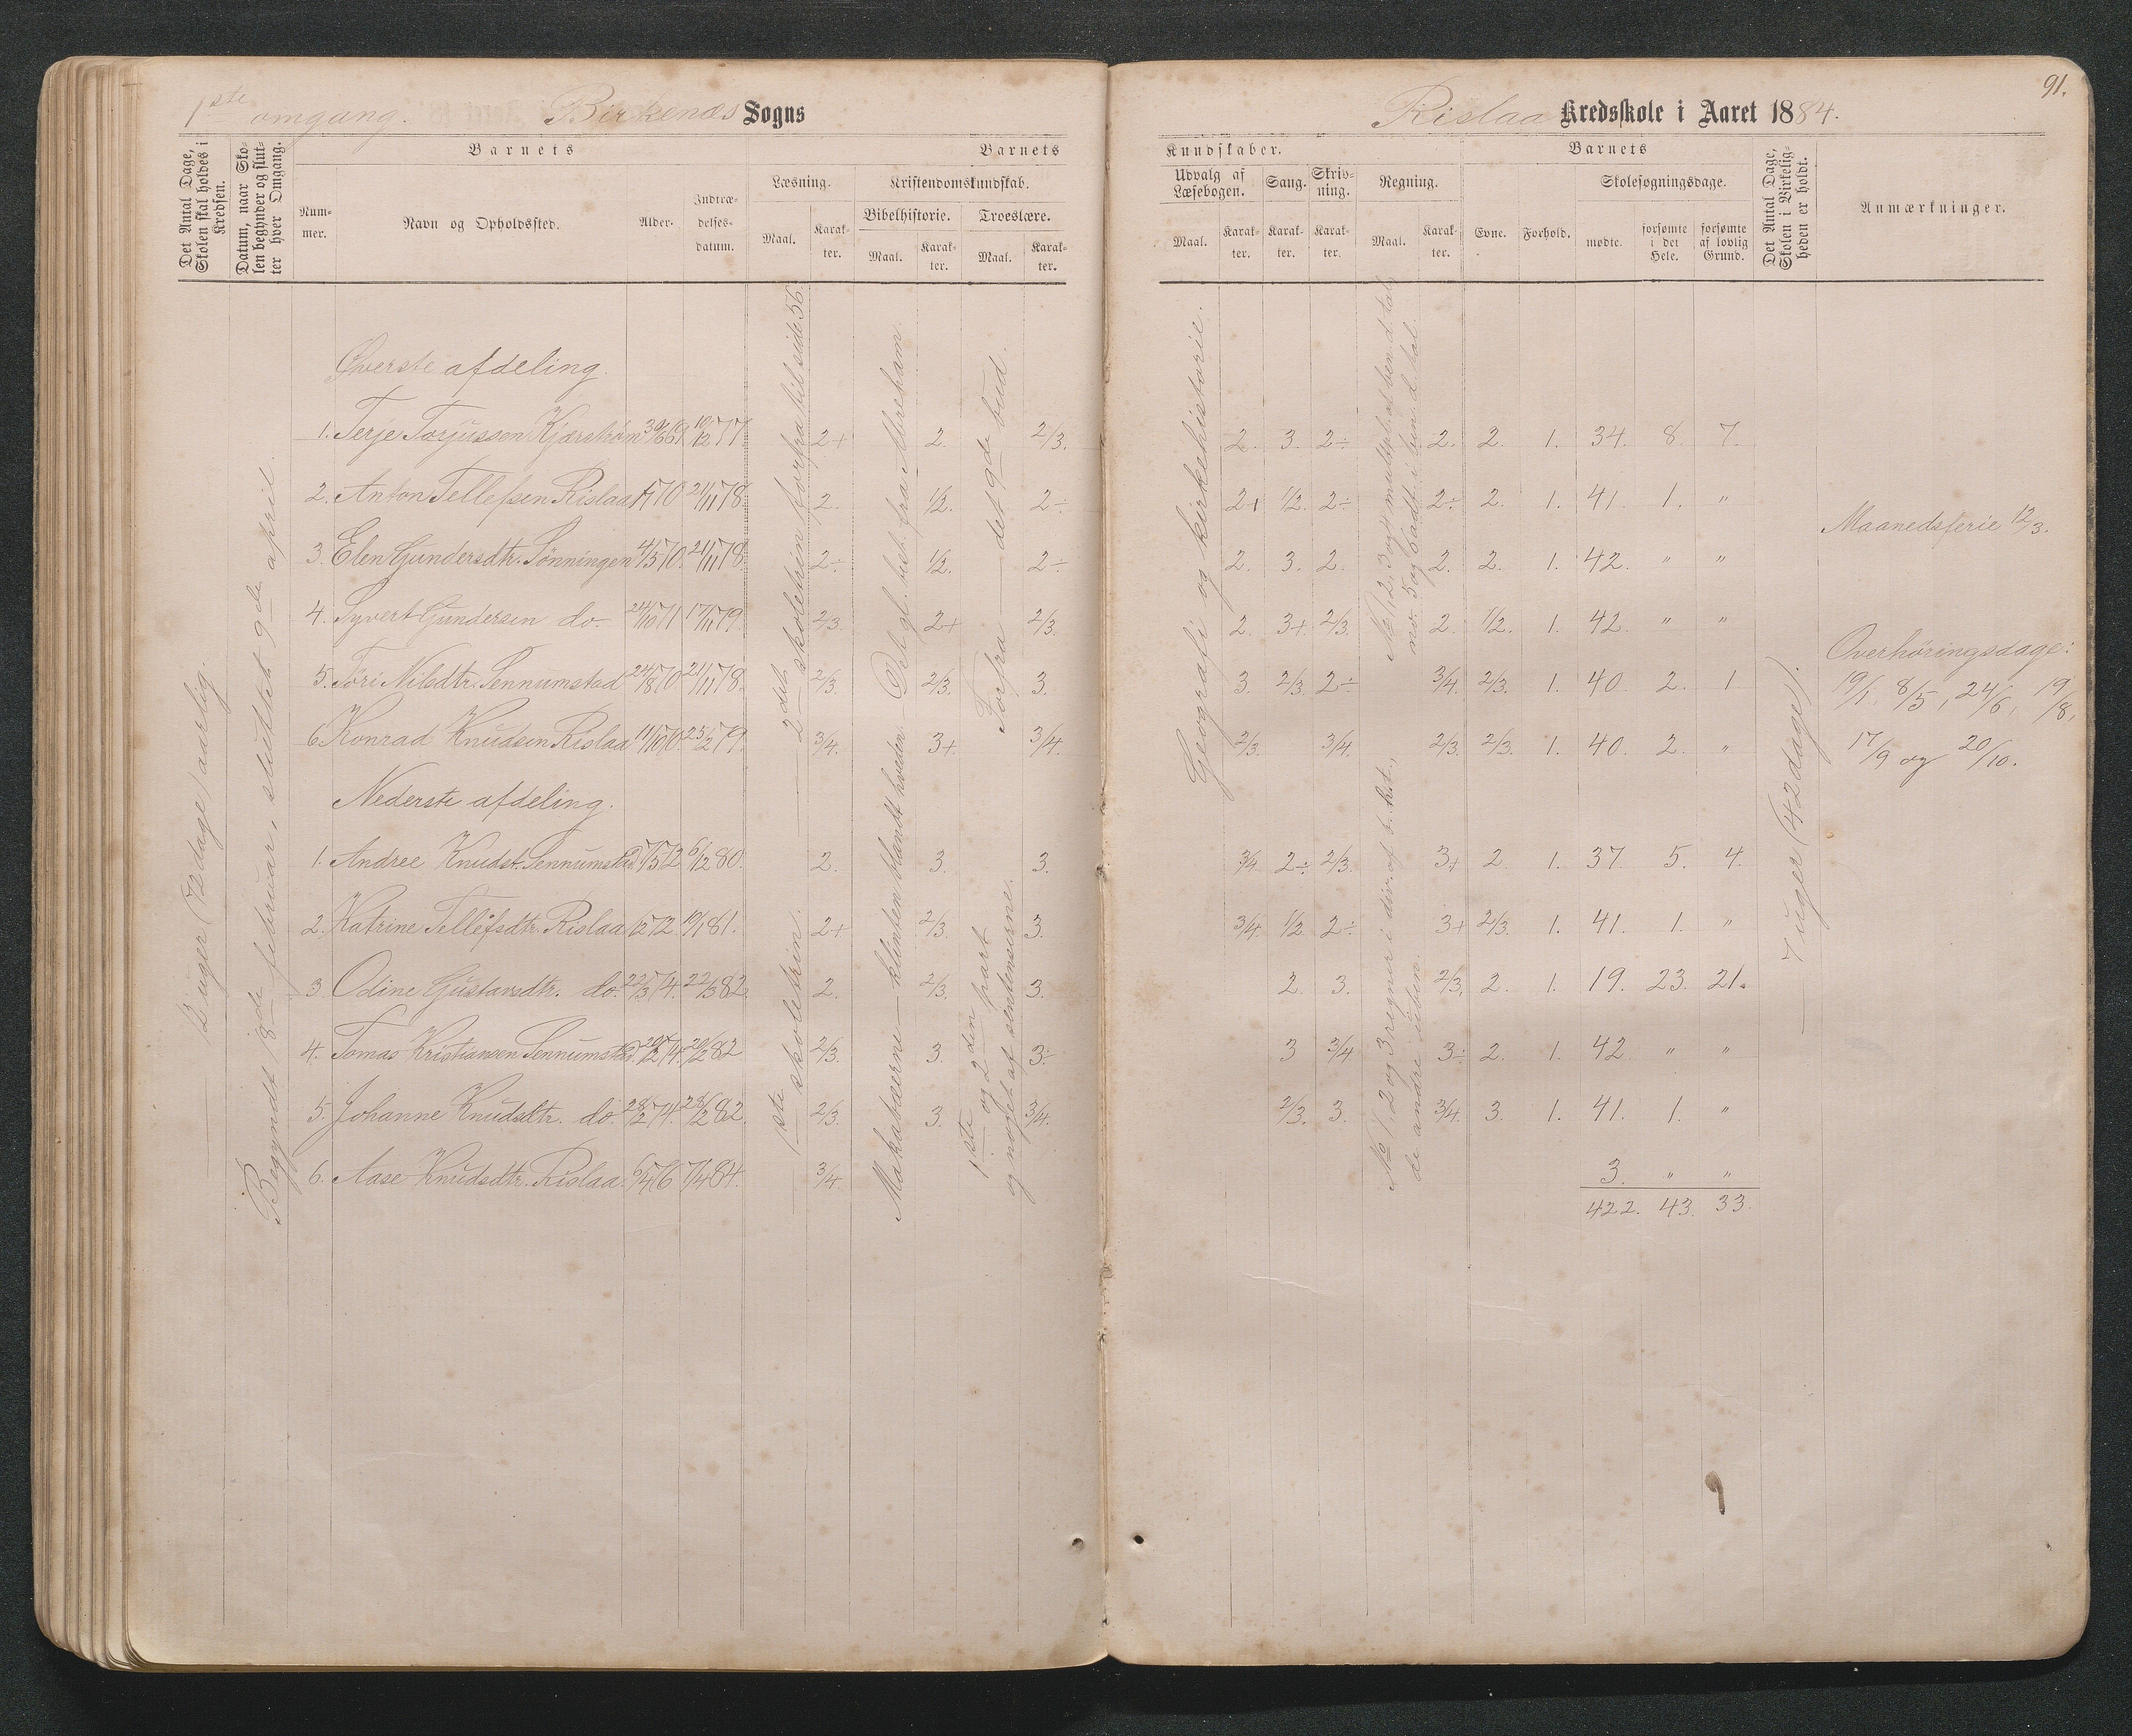 91.
1ste omgang. Birkenæs Sogns
Rislaa Kredsskole i Aaret 1884.
Det Antal Dage, Skolen skal holdes i Kredsen.
Datum, naar Skolen begynder og slutter hver Omgang.
Barnets
Nummer.
Navn og Opholdssted.
Alder.
Indtrædelsesdatum.
Barnets
Læsning.
Maal.
Karakter.
Kristendomskundskab.
Bibelhistorie.
Maal.
Karakter.
Troeslære.
Maal.
Karakter.
Kundskaber.
Udvalg af Læsebogen.
Maal.
Karakter.
Sang.
Karakter.
Skrivning.
Karakter.
Regning.
Maal.
Karakter.
Barnets
Evne.
Forhold.
Skolesøgningsdage.
mødte.
forsømte i det Hele.
forsømte af lovlig Grund.
Det Antal Dage, Skolen i Virkeligheden er holdt.
Anmærkninger.
12 uger (72 dage) aarlig.
Begyndt 18de februar, sluttet 9de april.
Øverste afdeling.
1. Terje Torjussen Kjærstrøm 30/6 69 10/12 77 2+ 2. 2/3. 2. 3. 2÷ 2. 2. 1. 34. 8. 7.
2. Anton Tellefsen Rislaa 70 21/11 78. 2. 1/2. 2÷ 2+ 1/2. 2÷ 2÷ 2. 1. 41. 1. "
3. Elen Gundersdtr. Sønningen 4/5 70. 21/11 78. 2÷ 1/2. 2÷ 2. 3. 2. 2. 2. 1. 42. " "
4. Syvert Gundersen do. 24/10 71 17/11 79. 2/3. 2+ 2/3. 2. 3+. 2/3. 2. 1/2. 1. 42. " "
5. Tori Nilsdtr. Sennumstad 24/8 70 21/11 78. 2/3. 2/3. 3. 3. 2/3. 2÷ 3/4. 2/3. 1. 40. 2. 1
6. Konrad Knudsen Rislaa 11/10 70. 25/2 79. 3/4. 3+. 3/4. 2/3. 3/4. 2/3. 2/3. 1. 40. 2. "
Nederste afdeling.
1. Andree Knudst. Sennumstad 7/5 72 6/12 80. 2. 3. 3. 3/4 2÷ 2/3. 3+ 2. 1. 37. 5. 4.
2. Katrine Tellefsdtr. Rislaa 72. 19/1 81. 2+ 2/3. 3. 3/4. 1/2 2÷ 3+ 2/3. 1. 41. 1. "
3. Odine Gustavsdtr. do. 22/3 74. 22/3 82. 2. 2/3. 3. 2. 3. 2/3. 2. 1. 19. 23. 21.
4. Tomas Kristiansen Sennumstad 20/2 74. 20/2 82 2/3. 3. 3÷ 3 3/4 3÷ 2. 1. 42 " "
5. Johanne Knudsdtr. do. 28/2 74. 28/2 82. 2/3. 3. 3/4. 2/3. 3. 3/4. 3. 1. 41. 1. "
6. Aase Knudsdtr. Rislaa. 6/4 76 7/4 84. 3/4. 3. " "
422. 43. 33.
2det skoletrin forfra til side 56.
1ste skoletrin.
Det gl. test. fra Abreham
Makabæerne — klinten blandt hveden.
Forfra — det 9de bud.
1ste og 2den part
og noget af sentenserne.
Geografi og kirkehistorie.
No 1, 2, 3 og 4 multipl. at ben. d. tal,
no. 5 og 6 add. i ben. d. tal.
No 1, 2 og 3 regner i div. af b. hst.,
de andre uben.
7 uger (42 dage).
Maanedsferie 12/3.
Overhøringsdage:
19/1, 8/5, 24/6, 19/8,
17/9 og 20/10.